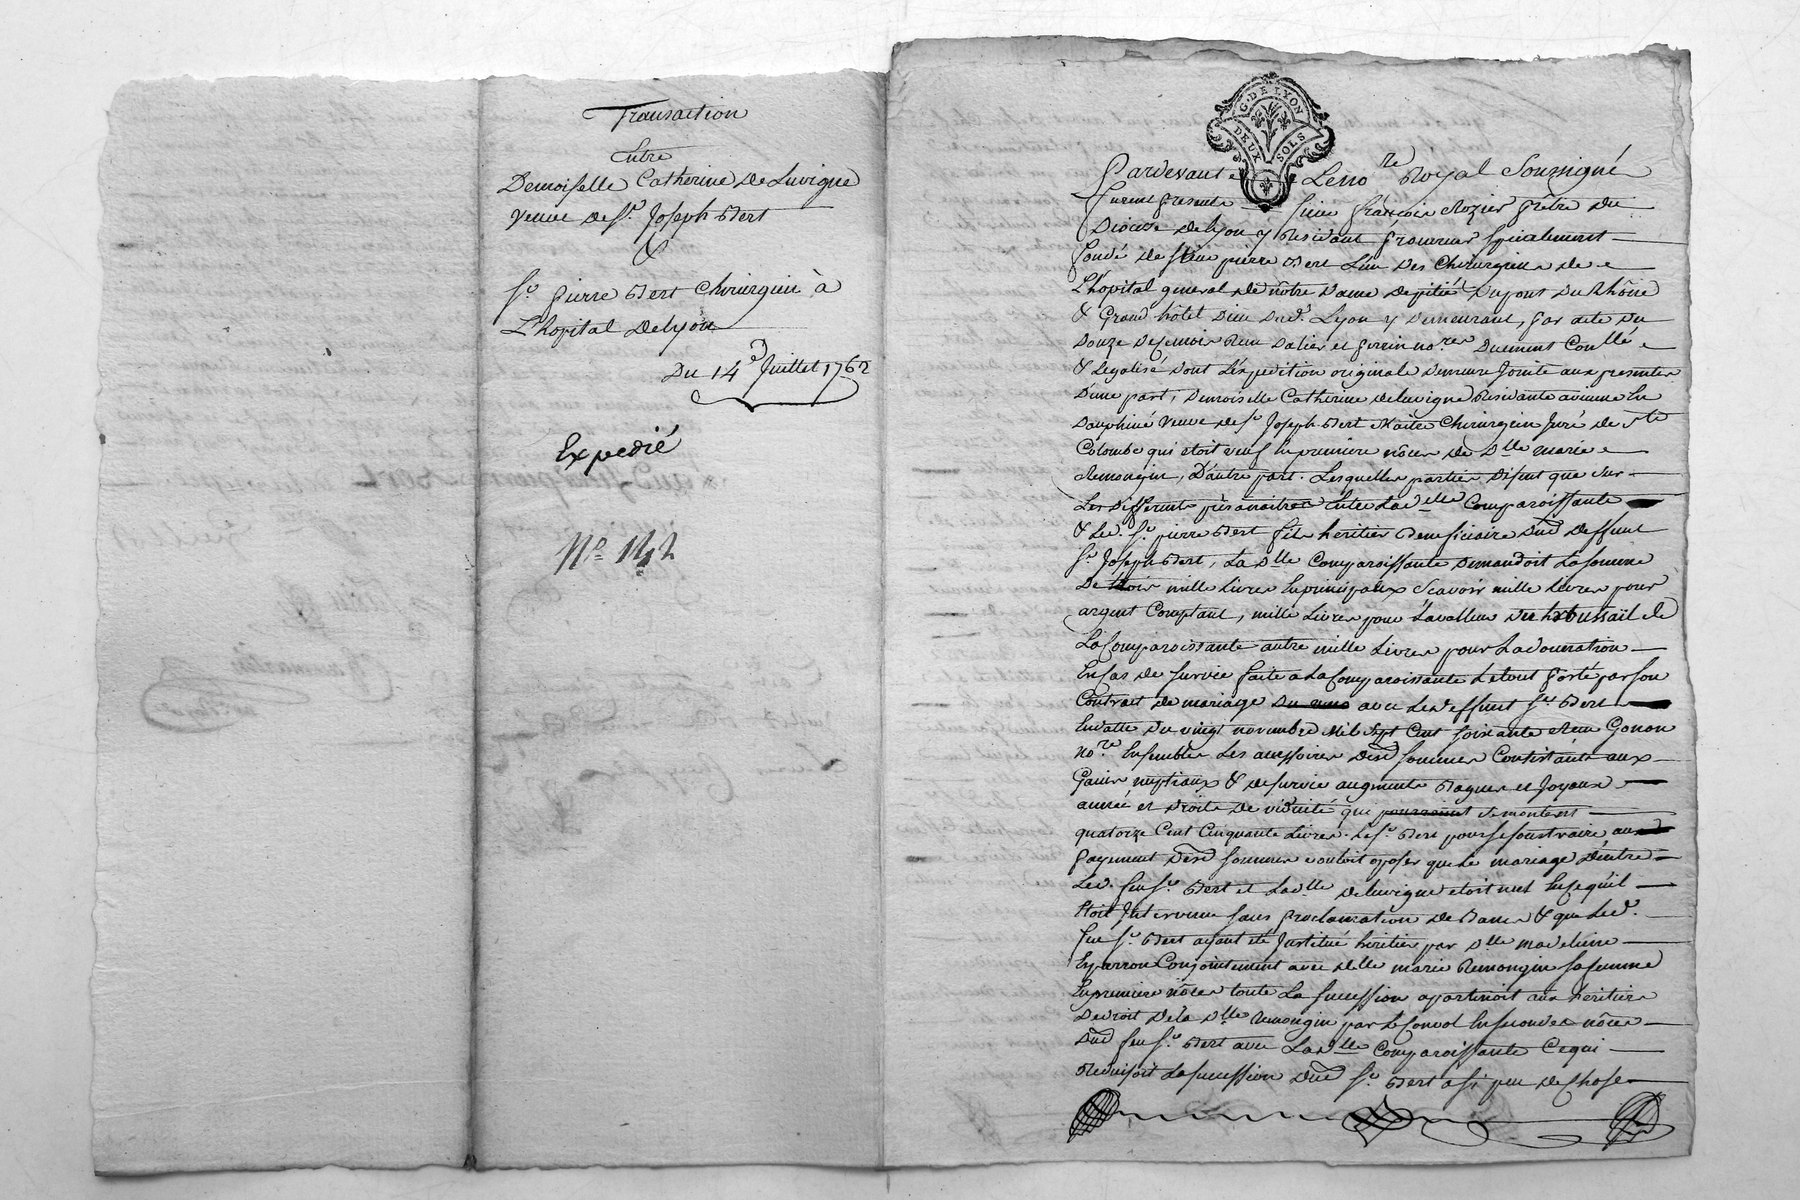 Transaction
Entre
Demoiselle Catherine De Luvigne
Veuve de Sr. Joseph Bert
&
Sr. pierre Bert Chirurgien à
L'hopital De Lyon
Du 14e Juillet 1762
Expedié
No 142
G. DE LYON
DEUX SOLS
Pardevant Le nore Royal Soussigné
furent presents sieur françois Rozier prêtre du
Dioceze de Lyon y Residant procureur specialement
fondé de sieur pierre Bert L'un des Chirurgiens de
L'hopital general de nôtre Dame de pitié Du pont Du Rhône
& Grand hôtel Dieu Dud. Lyon y Demeurant, par acte du
Douze De ce mois Reçu Dalier et perrin nores Duement Conllé
& Legalisé dont L'expedition originale Demeure Jointe aux presentes
D'une part, Demoiselle Catherine deluvigne Residante a vienne En
Dauphiné Veuve de Sr Joseph Bert Maitre Chirurgien Juré de Ste
Colombe qui etoit veuf En premiere nôces de Dlle marie
Remongin, D'autre part. Lesquelles parties Disent que sur
Les Differents prets a naitre Entre Lad. Dlle Comparoissante
& Led. Sr. pierre Bert fils heritier Beneficiaire Dud Deffunt
Sr. Joseph Bert, La Dlle Comparoissante Demandoit La somme
De trois mille Livres En principaux Scavoir mille Livres pour
argent Comptant, mille Livres pour La valleur Du trousseil de
La Comparoissante autre mille Livres pour La donnation
En cas de survie faite a La Comparoissante Le tout porté par son
Contrat de mariage avec Led deffunt Sr. Bert
En datte du vingt novembre Mil Sept Cent soixante Reçu Gonon
nore Ensembles Les accessoires desd sommes Consistants aux
Gains nuptiaux & de survie augments Bagues et Joyaux
année et Droits de viduité que se montent
quatorze Cent Cinquante Livres. Le Sr. Bert pour se soustraire au
payement desd sommes vouloit oposer que Le mariage D'entre
Led. feu Sr. Bert et Lad Dlle deluvigne etoit nul En ce qu'il
Etoit Intervenu sans proclamation de Bans & que Led.
feu Sr. Bert ayant été Institué heritier par Dlle madeleine
Eyparron Conjointement avec Delle marie Remongin sa femme
En premiere nôces toute La succession apartenoit aux heritiers
De droit De la Dlle Remongin par Le Convol En secondes nôces
Dud feu Sr. Bert avec La Dlle Comparoissante Ce qui
Reduisoit La succession Dud Sr. Bert a si peu de Chose